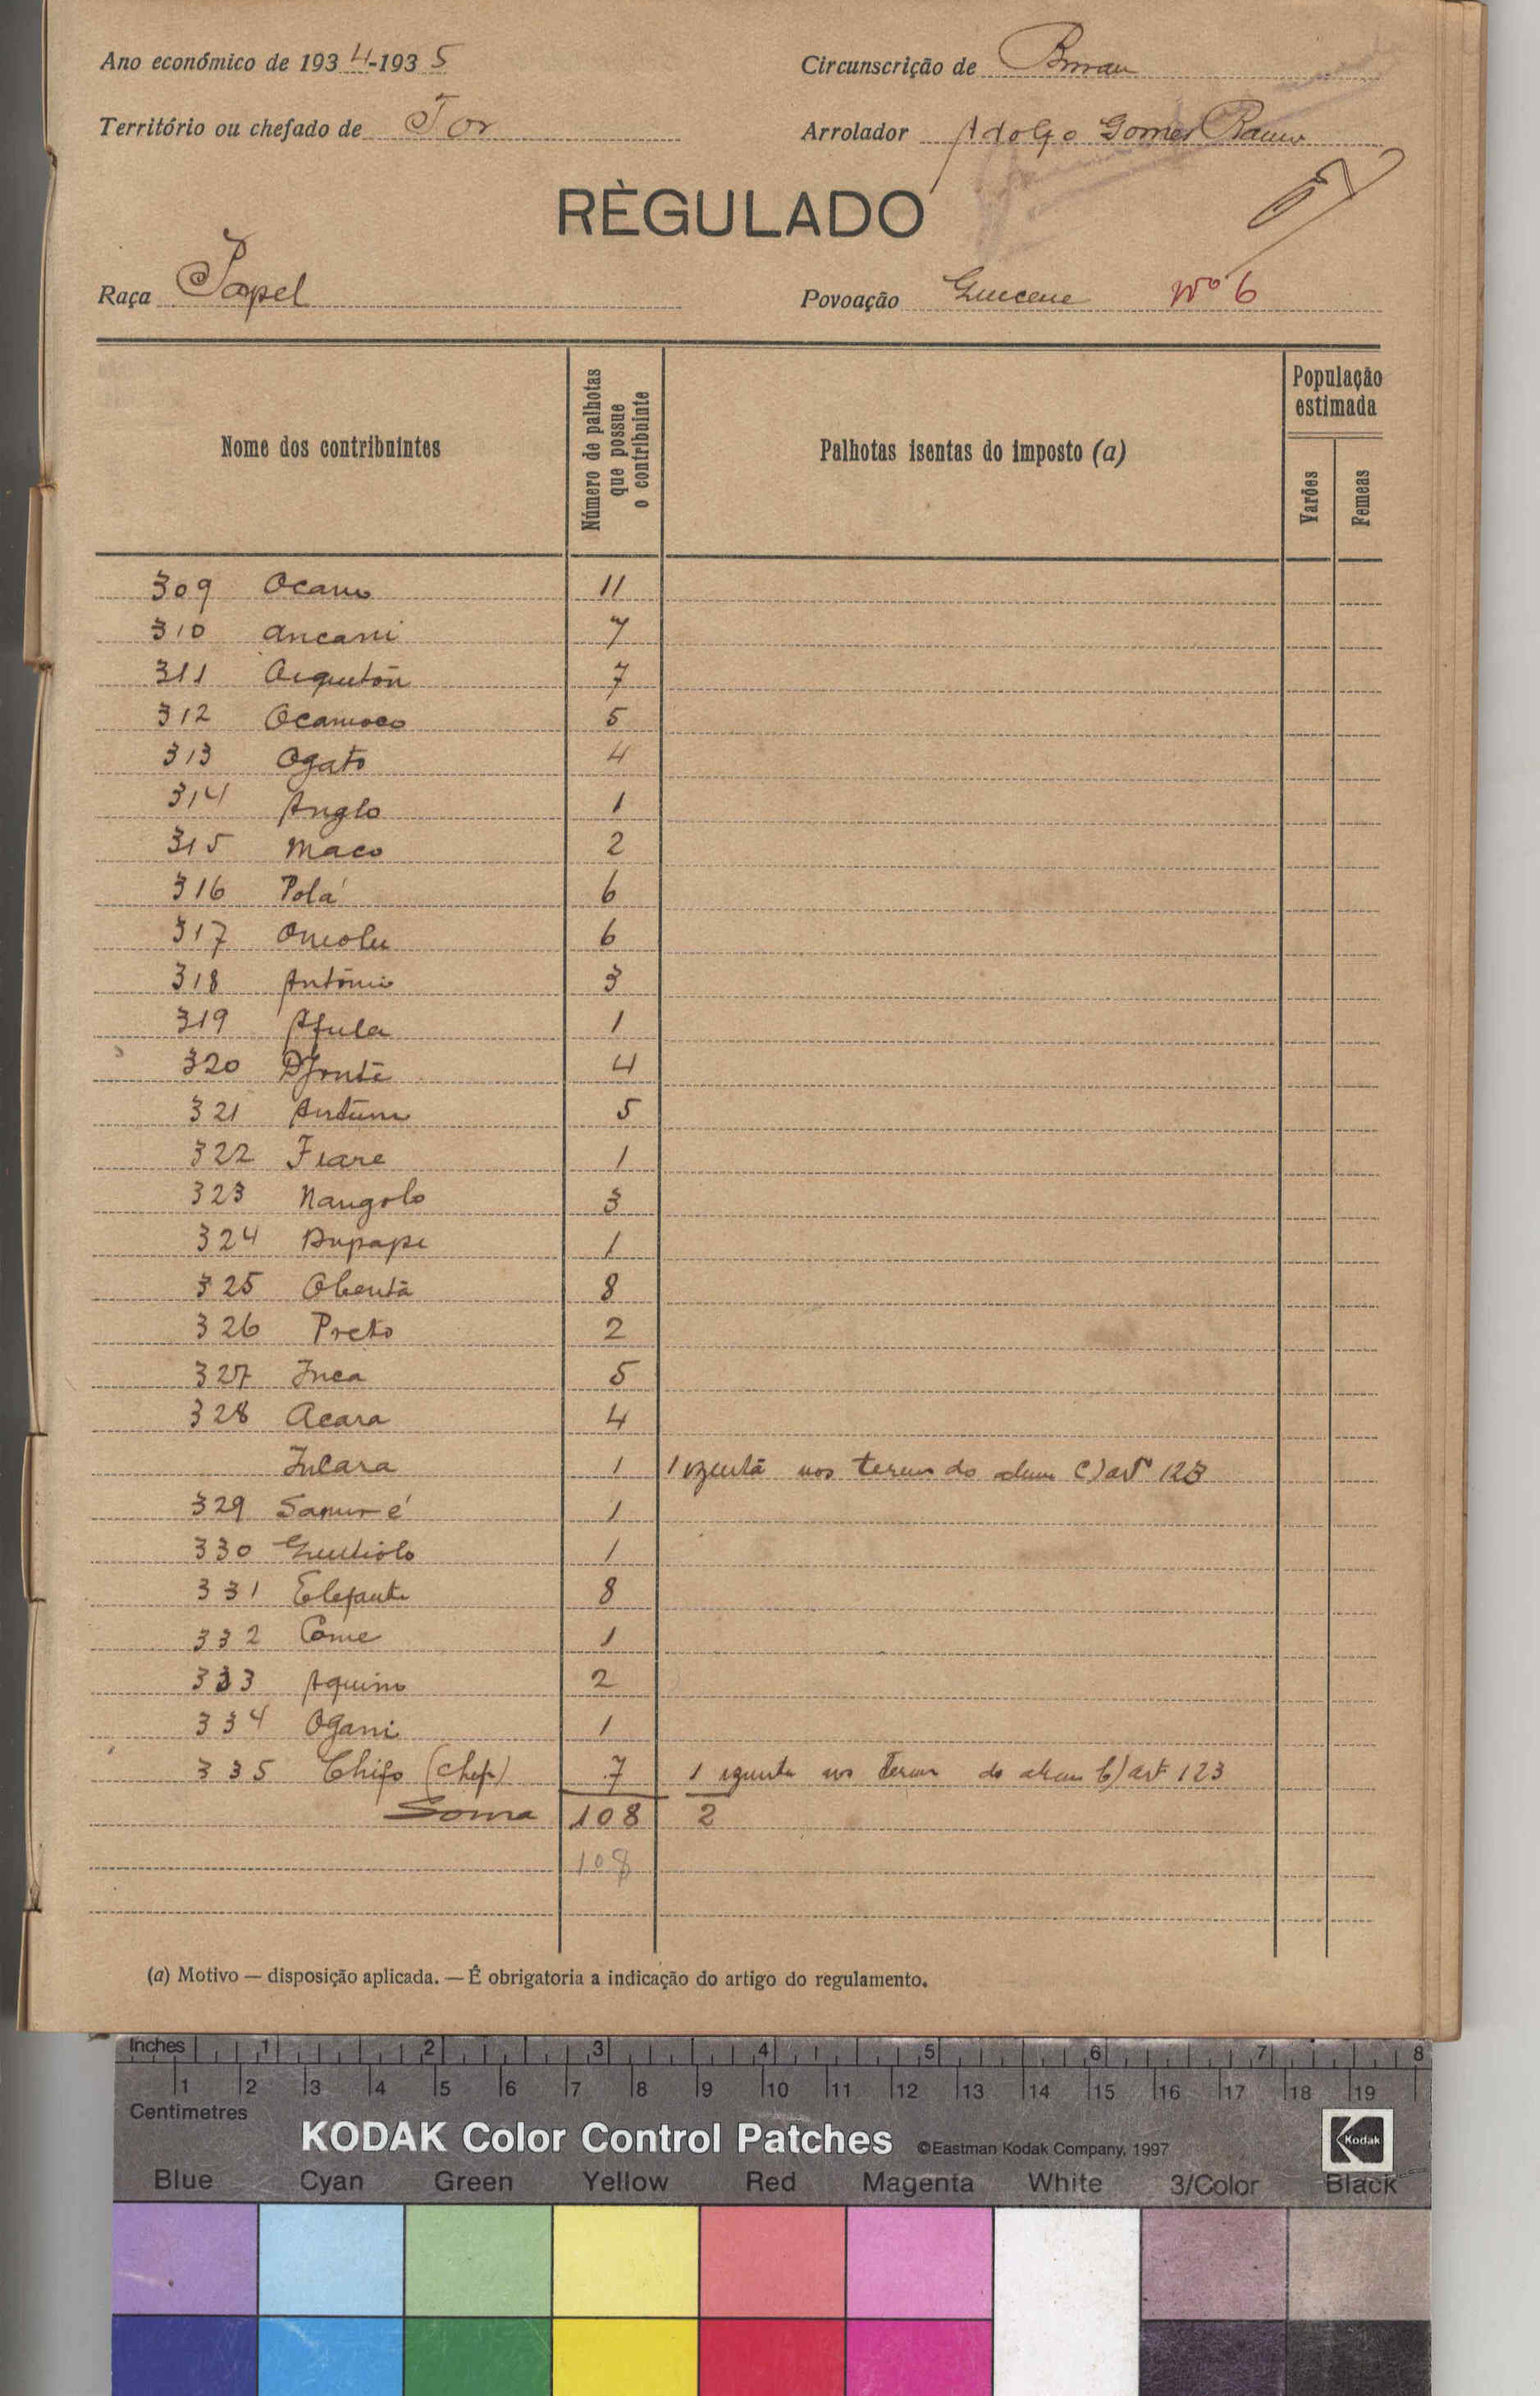 Ano económico de 1934-1935
Circunscrição de
Território ou chefado de Tor
Arrolador Adolfo Gomes Ramos
RÈGULADO
Raça Papel
Povoação Nº 6
Nome dos contribuintes
Número de palhotas que possue o contribuinte
Palhotas isentas do imposto (a)
População estimada
Varões
Femeas
309 Ocano 11
310 Ancani 7
311 7
312 Ocamoco 5
313 Ogato 4
314 Anglo 1
315 Maco 2
316 Polá 6
317 6
318 António 3
319 Afula 1
320 4
321 5
322 Fiare 1
323 Nangolo 3
324 1
325 8
326 Preto 2
327 Inca 5
328 Acara 4
Incara 1 1 nos termos do c) artº 123
329 1
330 1
331 Elefante 8
332 Come 1
333 Aquino 2
334 Ogani 1
335 Chifo (chefe) 7 1 nos termos da b) art 123
Soma 108 2
108
(a) Motivo — disposição aplicada. — É obrigatoria a indicação do artigo do regulamento.
Inches 1 2 3 4 5 6 7 8
1 2 3 4 5 6 7 8 9 10 11 12 13 14 15 16 17 18 19
Centimetres
KODAK Color Control Patches ©Eastman Kodak Company, 1997 Kodak
Blue Cyan Green Yellow Red Magenta White 3/Color Black